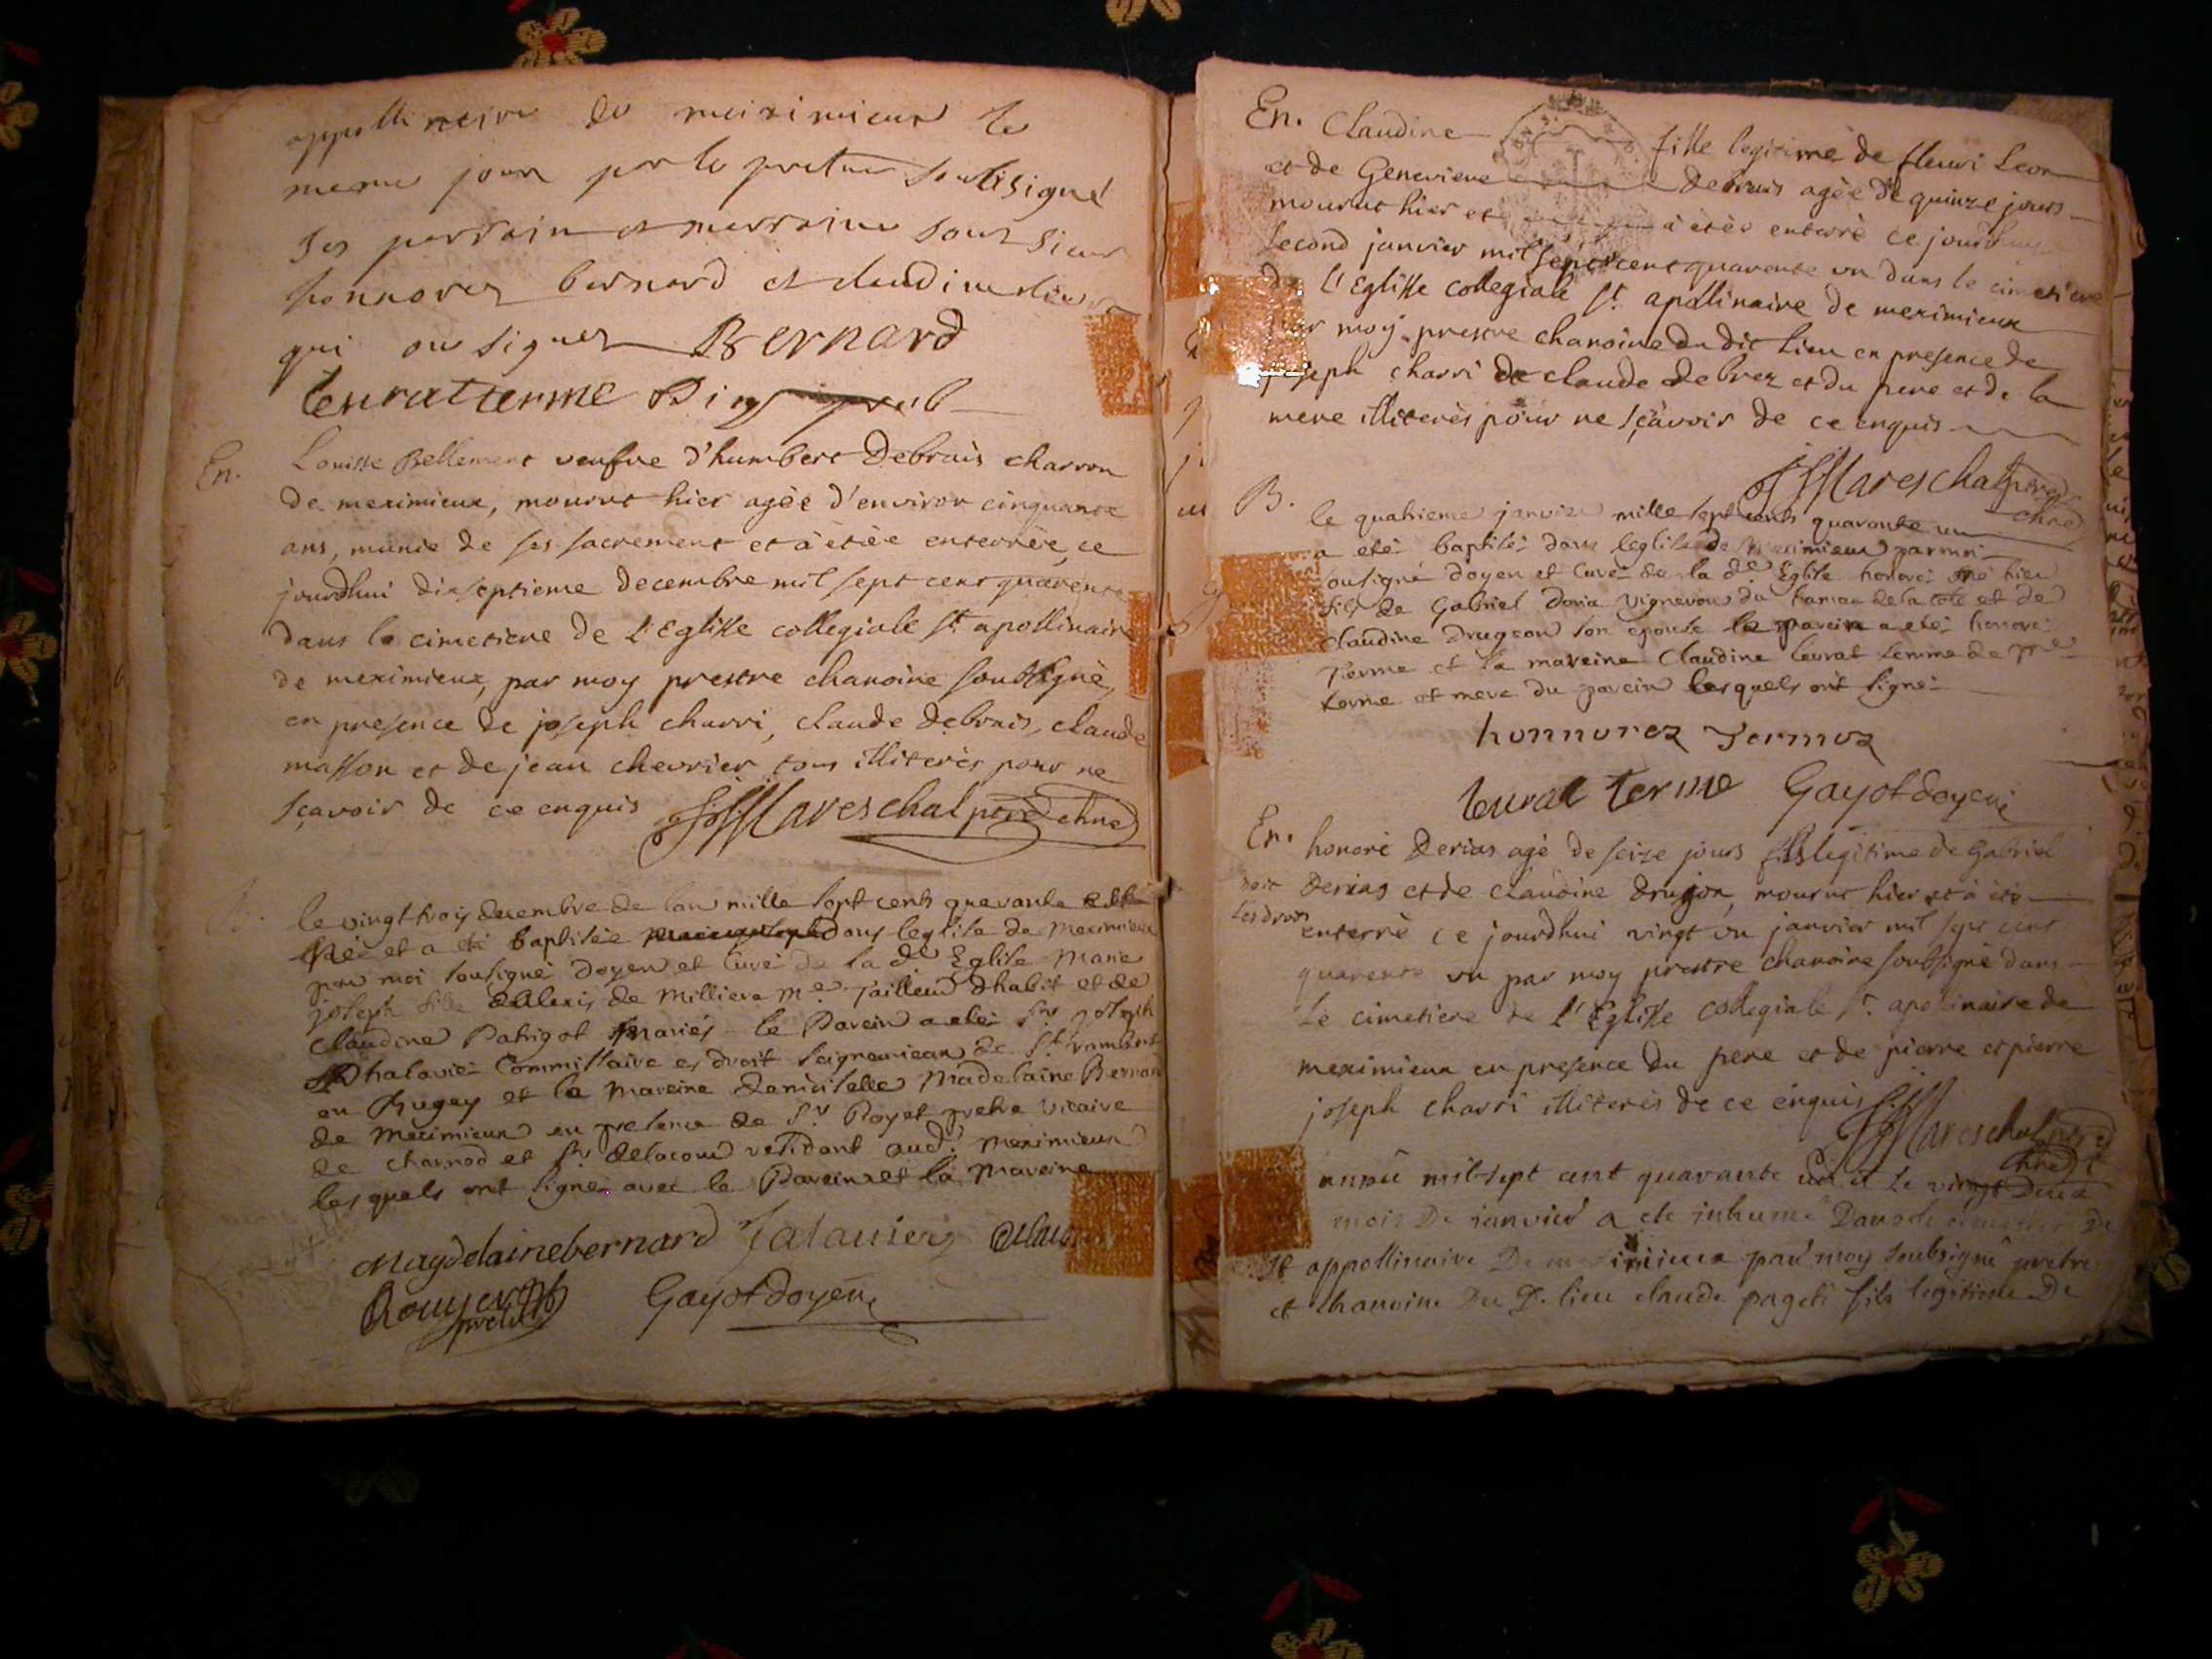 appollinaire de meiximieux le
meme jour par le pretre soubsigné
ses parrain et marraine sont sieur
honnorez bernard et claudine
qui on signez Bernard
leurat terme
En. Louisse Bellement veufve d'humbert Debrais charron
de meximieux, mourut hier agèe d'environ cinquante
ans, munie de ses sacrement et à étèe enterrèe, ce
jourdhui dixseptieme decembre mil sept cent quarente
dans le cimetiere de l'Eglisse collegiale st. apollinaire
de meximieux, par moy prestre chanoine soubsigné,
en presence de joseph charri, claude debrais, claude
masson et de jean chevrier tous illiterès pour ne
sçavoir de ce enquis Mareschal
le vingt trois decembre de lan mille sept cents quarante est
née et a eté baptisée dans leglise de Meximieux
par moi sousigné doyen et Curé de la de Eglise Marie
joseph fille dAlexis de Milliera me. Tailleur dhabit et de
Claudine Patrigot mariés le Parein a eté Sr joseph
Commissaire es droit seigneuriaux de St rambert
en Bugey et la mareine demoiselle Madelaine Bernard
de Meximieux en presence de Sr. Royet pretre vicaire
de Charnod et Sr delacour residant aud. Meximieux
lesquels ont signé avec le Parein et la Mareine
Magdelainebernard
Gayot doyen
En. Claudine fille legitime de fleuri Leon
et de Genevieve debrais agèe de quinze jours
mourut hier et à étèe enterrè ce jourdhuy
second janvier mil sept cent quarente un dans le cimetiere
de l'Eglisse collegiale st. apollinaire de meximieux
par moy prestre chanoine du dit lieu en presence de
joseph charri de claude debrez et du pere et de la
mere illiterès pour ne sçavoir de ce enquis
Mareschal
B. le quatrieme janvier mille sept cents quarante un
a eté baptisé dans leglise de Meximieux par moi
sousigné doyen et Curé de la de Eglise honoré né hier
fils de Gabriel doria vigneron du hamau de la cote et de
Claudine Drugeon son epouse le parein a eté honoré
Terme et la mareine Claudine leurat femme de
terme et mere du parein lesquels ont signé
honnorez Termoz
leurat terme Gayot doyen
En. honoré Derias agé de seize jours fils legitime de Gabriel
doit Derias et de claudine drujon, mourut hier et à été
les droits enterrè ce jourdhui vingt un janvier mil sept cent
quarente un par moy prestre chanoine soubsignè dans
le cimetiere de l'Eglisse collegiale st. apolinaire de
meximieux en presence du pere et de pierre et pierre
joseph charri illiterès de ce enquis
Mareschal
mil sept cent quarante un et le vingt deux
mois de janvier a ete inhumé dans le de
st appollinaire de par moy soubsigné pretre
et chanoine du d. lieu claude fils legitime de